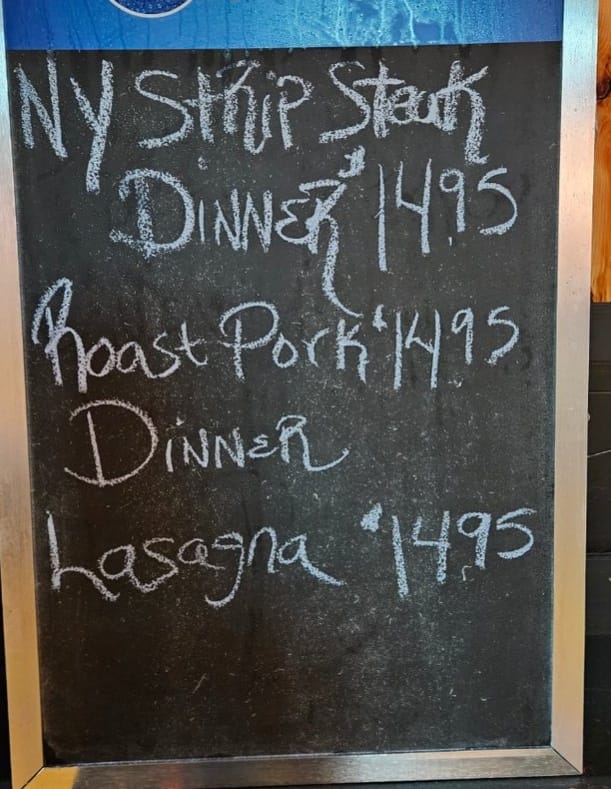 NY Strip Steak
DINNER $14.95
Roast Pork $14.95
DINNER
Lasagna $14.95